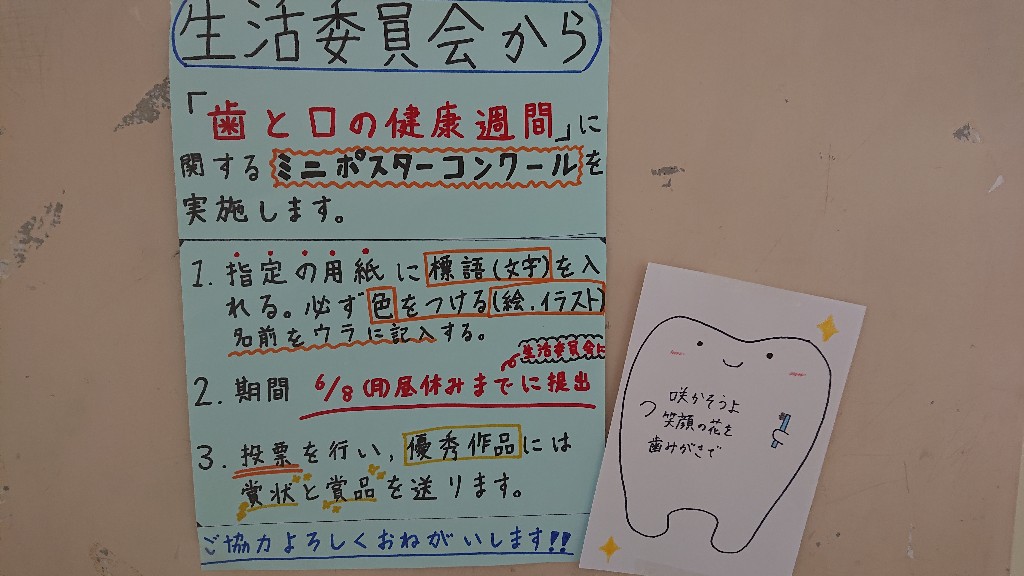 生活委員会から
「歯と口の健康週間」に
関するミニポスターコンクールを
実施します。
1. 指定の用紙に標語(文字)を入
れる。必ず色をつける(絵.イラスト)
名前をウラに記入する。
生活委員会に
2. 期間 6/8(月)昼休みまでに提出
3. 投票を行い,優秀作品には
賞状と賞品を送ります。
ご協力よろしくおねがいします!!
咲かそうよ
笑顔の花を
歯みがきで